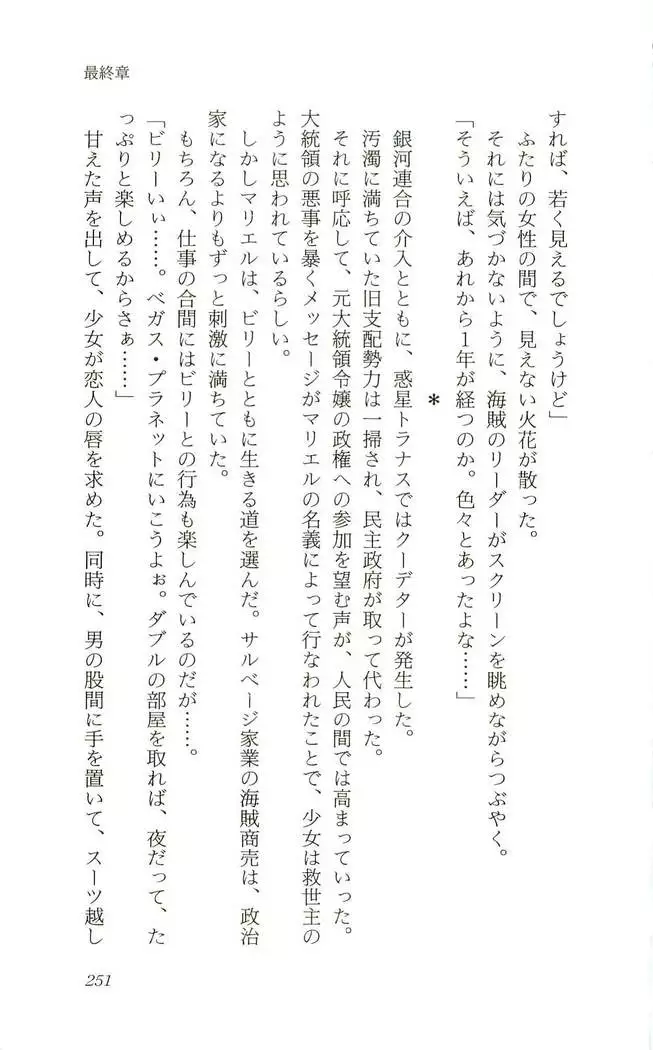 最終章
すれば、若く見えるでしょうけど」
ふたりの女性の間で、見えない火花が散った。
それには気づかないように、海賊のリーダーがスクリーンを眺めながらつぶやく。
「そういえば、あれから1年が経つのか。色々とあったよな……」
＊
銀河連合の介入とともに、惑星トラナスではクーデターが発生した。
汚濁に満ちていた旧支配勢力は一掃され、民主政府が取って代わった。
それに呼応して、元大統領令嬢の政権への参加を望む声が、人民の間では高まっていった。
大統領の悪事を暴くメッセージがマリエルの名義によって行なわれたことで、少女は救世主の
ように思われているらしい。
しかしマリエルは、ビリーとともに生きる道を選んだ。サルベージ家業の海賊商売は、政治
家になるよりもずっと刺激に満ちていた。
もちろん、仕事の合間にはビリーとの行為も楽しんでいるのだが……。
「ビリーいぃ……。ベガス・プラネットにいこうよぉ。ダブルの部屋を取れば、夜だって、た
っぷりと楽しめるからさぁ……」
甘えた声を出して、少女が恋人の唇を求めた。同時に、男の股間に手を置いて、スーツ越し
251